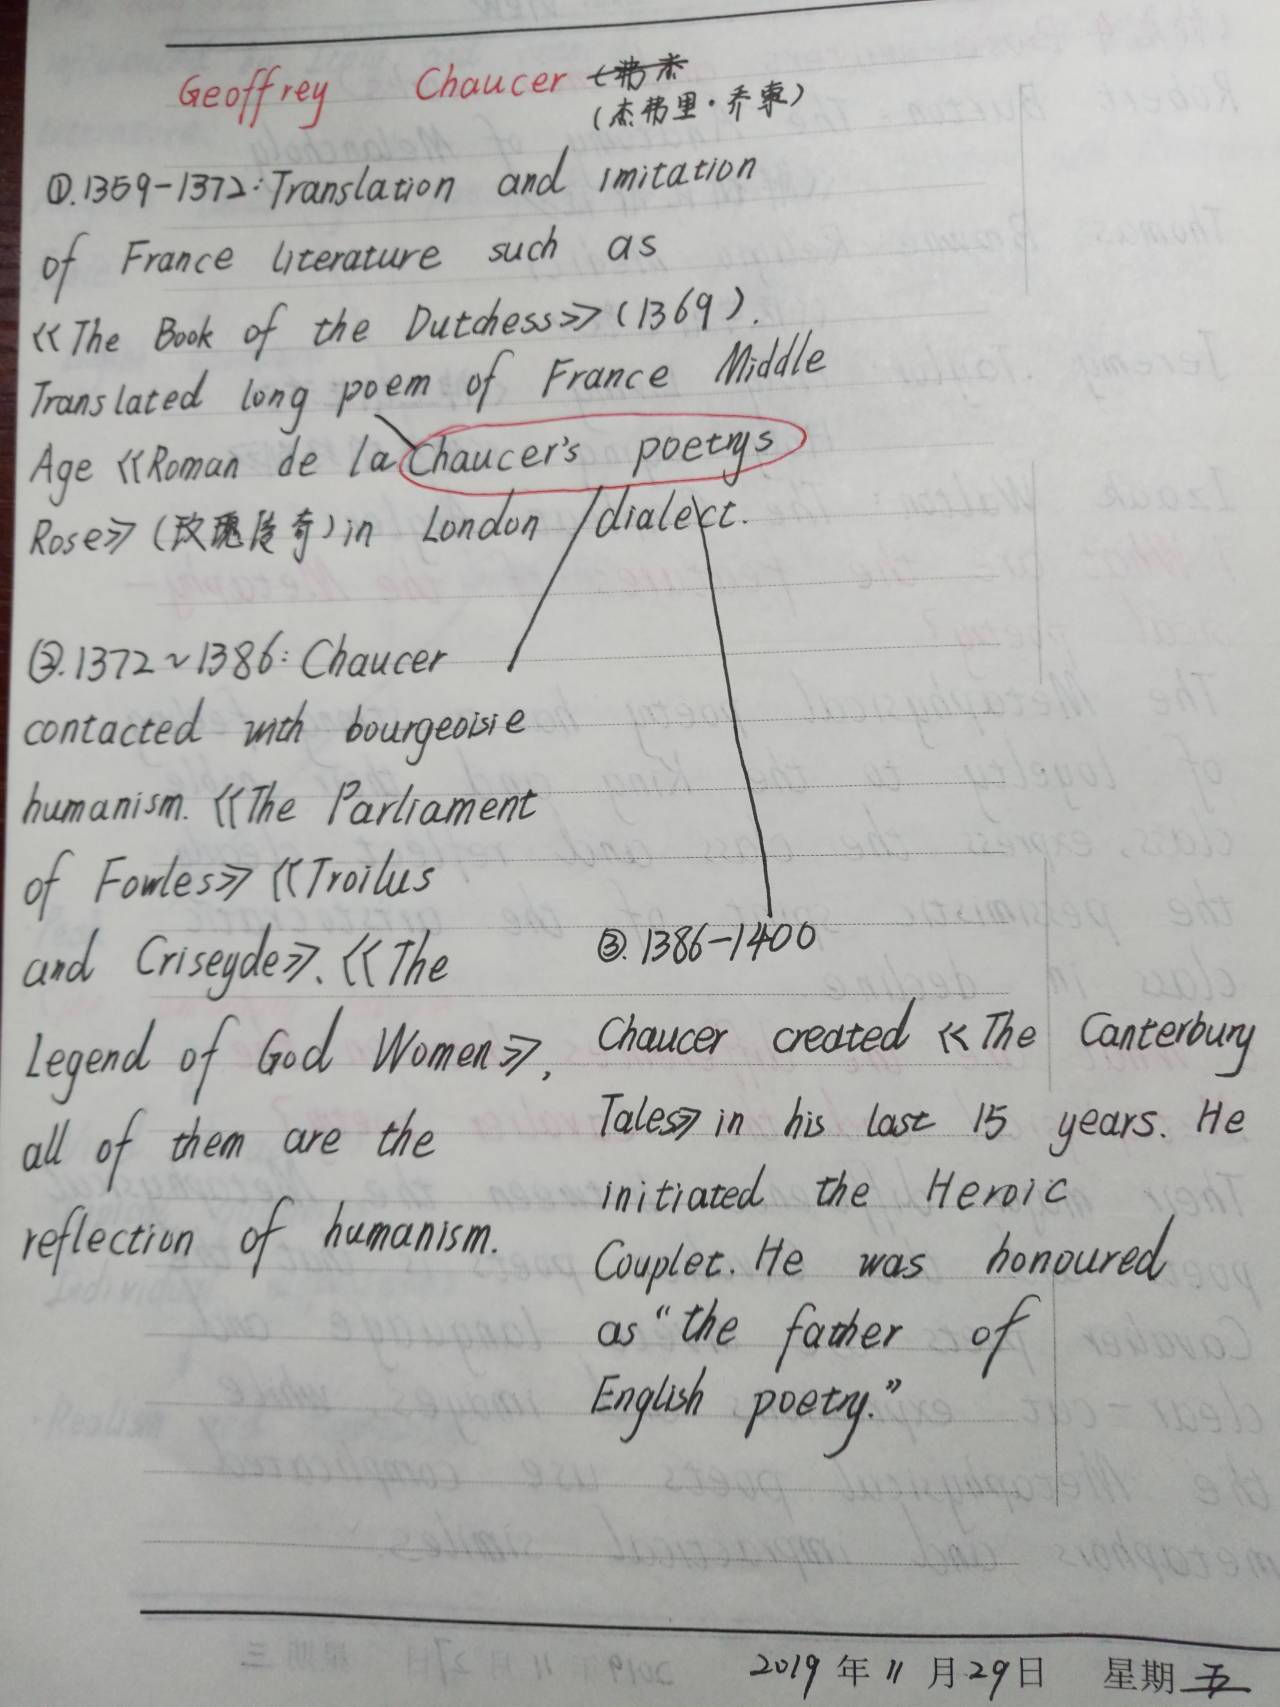 Geoffrey Chaucer
(杰弗里·乔叟)
①.1359-1372:Translation and imitation
of France literature such as
《The Book of the Dutchess》(1369).
Translated long poem of France Middle
Age 《Roman de la
Chaucer's poetrys
Rose》(玫瑰传奇)in London dialect.
②.1372~1386: Chaucer
contacted with bourgeoisie
humanism.《The Parliament
of Fowles》《Troilus
and Criseyde》、《The
Legend of God Women》,
all of them are the
reflection of humanism.
③.1386-1400
Chaucer created 《The Canterbury
Tales》in his last 15 years. He
initiated the Heroic
Couplet. He was honoured
as "the father of
English poetry."
2019年11月29日 星期五